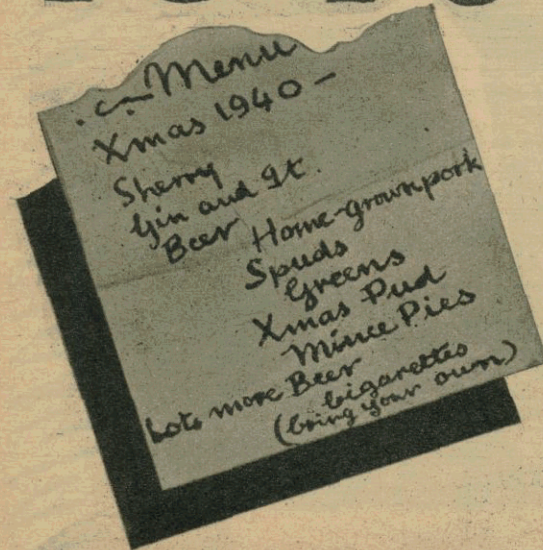 Menu
Xmas 1940 -
Sherry
Gin and It.
Beer
Home-grown pork
Spuds
Greens
Xmas Pud
Mince Pies
Lots more Beer
Cigarettes
(bring your own)